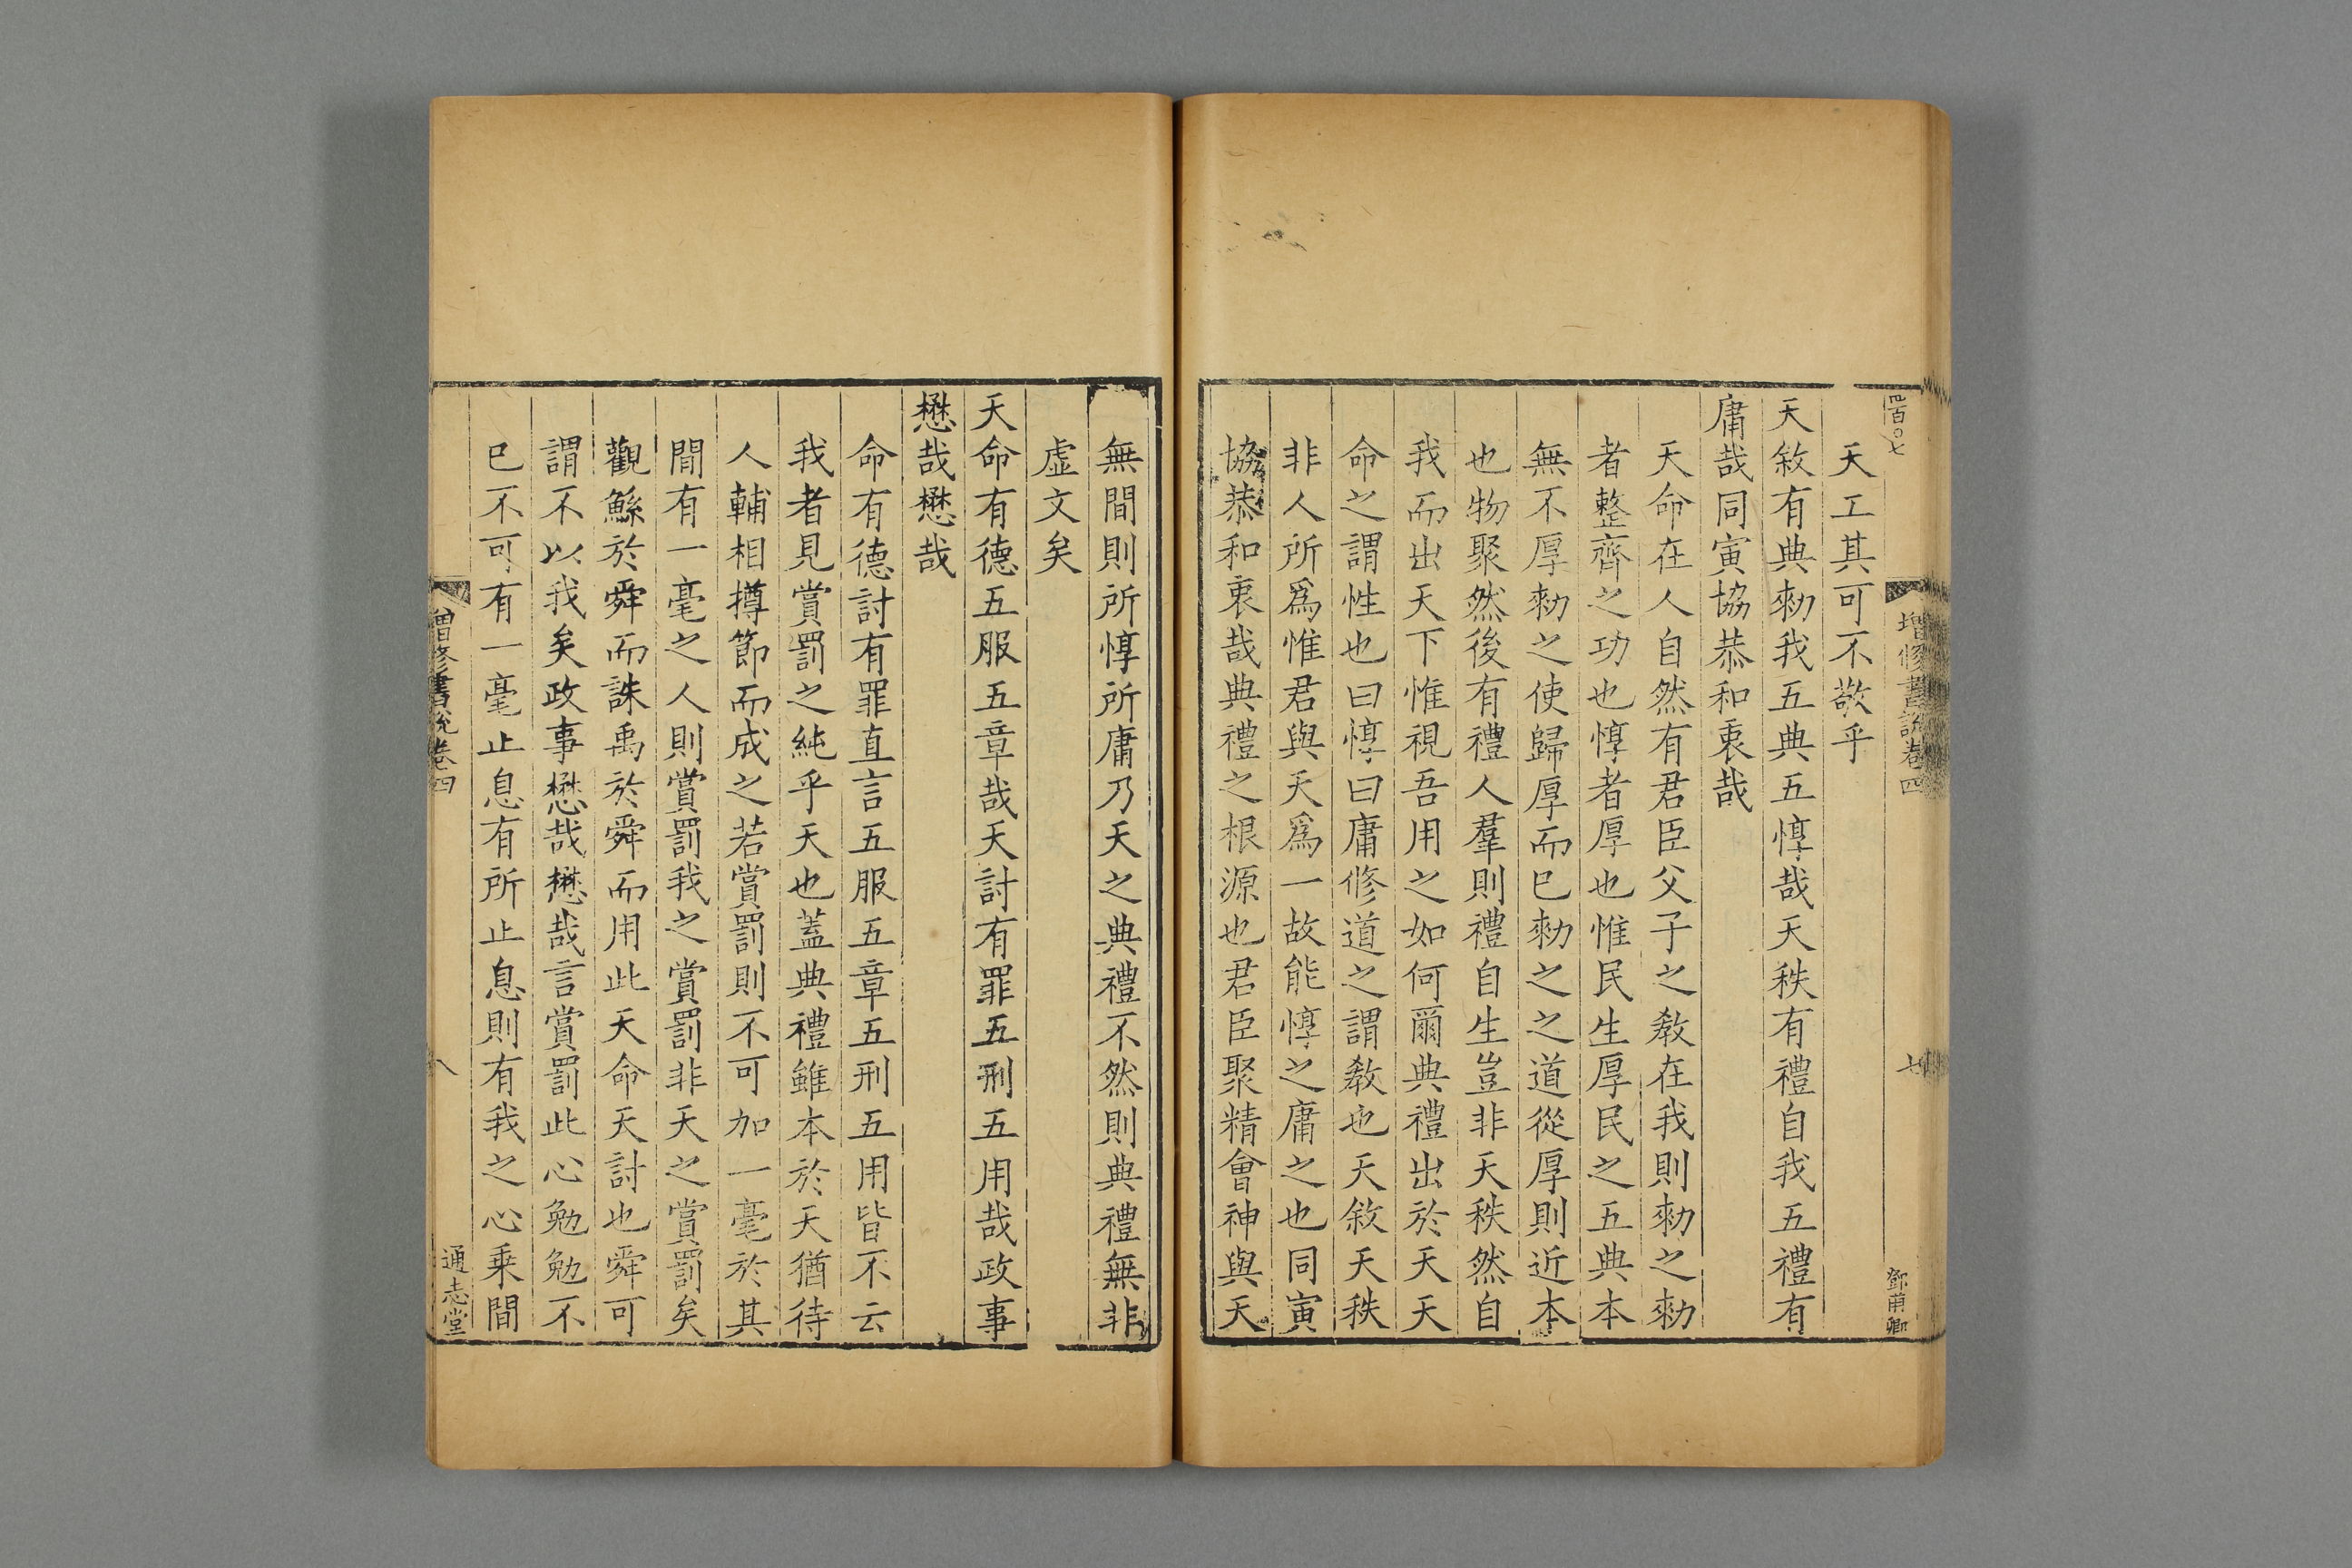 四百〇七
增修書說卷四
七
鄧甫卿
天工其可不敬乎
天敘有典勑我五典五惇哉天秩有禮自我五禮有
庸哉同寅協恭和衷哉
天命在人自然有君臣父子之敎在我則勑之勑
者整齊之功也惇者厚也惟民生厚民之五典本
無不厚勑之使歸厚而已勑之之道從厚則近本
也物聚然後有禮人羣則禮自生豈非天秩然自
我而出天下惟視吾用之如何爾典禮出於天天
命之謂性也曰惇曰庸修道之謂敎也天敘天秩
非人所爲惟君與天爲一故能惇之庸之也同寅
協恭和衷哉典禮之根源也君臣聚精會神與天
無間則所惇所庸乃天之典禮不然則典禮無非
虛文矣
天命有德五服五章哉天討有罪五刑五用哉政事
懋哉懋哉
命有德討有罪直言五服五章五刑五用皆不云
我者見賞罰之純乎天也蓋典禮雖本於天猶待
人輔相撙節而成之若賞罰則不可加一毫於其
間有一毫之人則賞罰我之賞罰非天之賞罰矣
觀鯀於舜而誅禹於舜而用此天命天討也舜可
謂不以我矣政事懋哉懋哉言賞罰此心勉勉不
已不可有一毫止息有所止息則有我之心乗間
增修書說卷四
八
通志堂